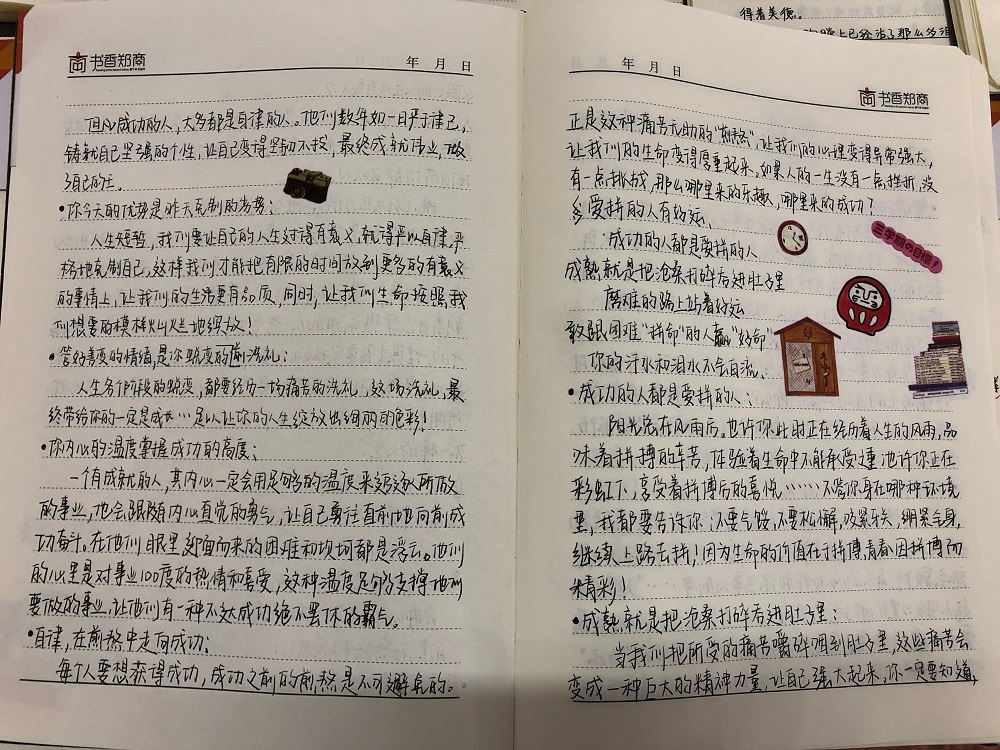 书香郑商
年 月 日
但凡成功的人，大多都是自律的人。他们数年如一日严于律己，
铸就自己坚强的个性，让自己变得坚韧不拔，最终成就伟业，做
了自己的主。
•你今天的优势是昨天克制的劣势：
人生短暂，我们要让自己的人生过得有意义，就得严以自律，严
格地克制自己，这样我们才能把有限的时间放到更多的有意义
的事情上，让我们的生活更有品质，同时，让我们生命按照我
们想要的模样灿烂地绽放！
•管好善变的情绪，是你蜕变的前洗礼：
人生各个阶段的蜕变，都要经历一场痛苦的洗礼，这场洗礼，最
终带给你的一定是成长…足以让你的人生绽放出绚丽的色彩！
•你内心的温度掌握成功的高度：
一个有成就的人，其内心一定会用足够多的温度来滚烫所做
的事业，也会跟随内心直觉的勇气，让自己勇往直前地向前成
功奋斗。在他们眼里迎面而来的困难和坎坷都是浮云。他们
的心里是对事业100度的热情和喜爱，这种温度足够支撑他们
要做的事业，让他们有一种不达成功绝不罢休的霸气。
•自律，在煎熬中走向成功：
每个人要想获得成功，成功之前的煎熬是不可避免的。
得着美德。
晚上已经活了那么多
年 月 日
书香郑商
正是这种痛苦无助的“煎熬”，让我们的心理变得异常强大，
让我们的生命变得厚重起来。如果人的一生没有一点挫折，没
有一点挑战，那么哪里来的乐趣，哪里来的成功？
爱拼的人有好运、
成功的人都是爱拼的人
三学期の目標！
成熟就是把沧桑打碎吞进肚子里
磨难的路上站着好运
敢跟困难“拼命”的人赢“好命”
你的汗水和泪水不会白流、
•成功的人都是爱拼的人：
阳光总在风雨后。也许你此时正在经历着人生的风雨，品
味着拼搏的辛苦，体验着生命中不能承受之重，也许你正在
彩虹下，享受着拼搏后的喜悦……不管你身在哪种环境
里，我都要告诉你：不要气馁，不要松懈，咬紧牙关，绷紧全身，
继续上路去拼！因为生命的价值在于拼搏，青春因拼搏而
精彩！
•成熟就是把沧桑打碎吞进肚子里：
当我们把所受的痛苦嚼碎咽到肚子里，这些痛苦会
变成一种巨大的精神力量，让自己强大起来，你一定要知道，